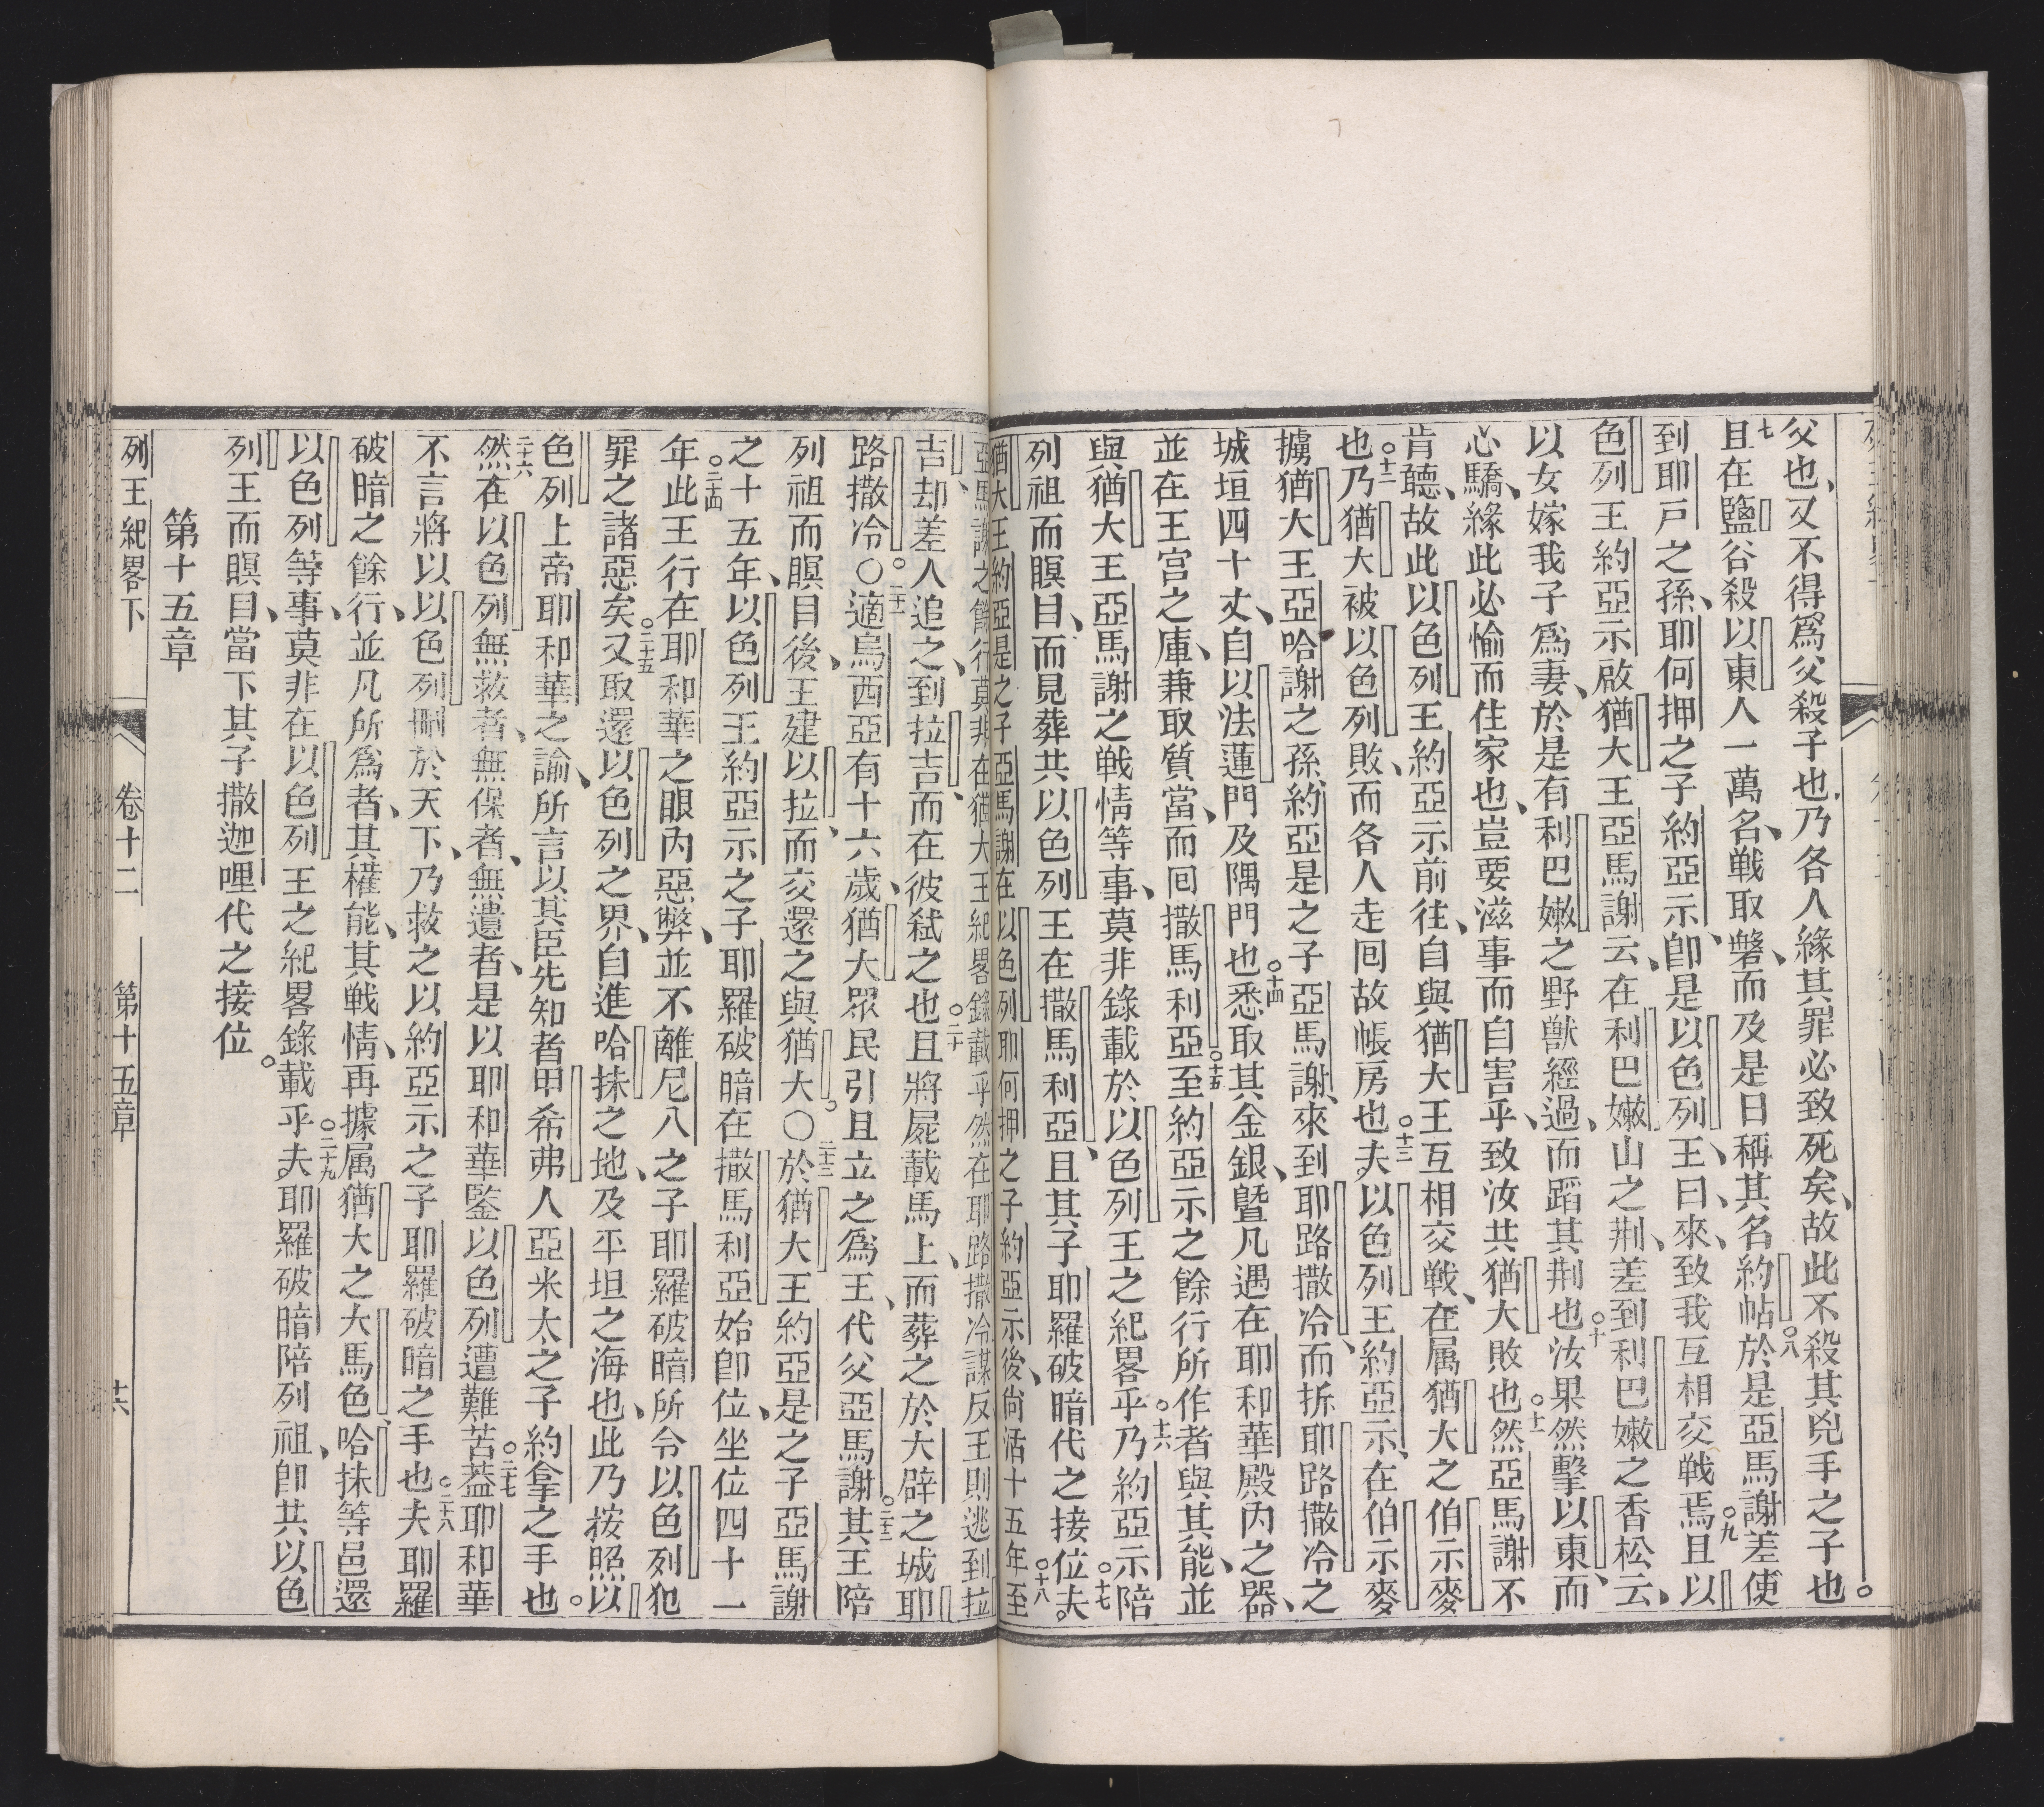 父也、又不得爲父殺子也、乃各人緣其罪必致死矣、故此不殺其兇手之子也。
七且在鹽谷殺以東人一萬名、戰取磐、而及是日稱其名約帖○八於是亞馬謝差使
到耶戸之孫、耶何押之子約亞示、即是以色列王、曰、來、致我互相交戰焉○九且以
色列王約亞示啟猶大王亞馬謝云、在利巴嫩山之荆、差到利巴嫩之香松云、
以女嫁我子爲妻、於是有利巴嫩之野獸經過、而蹈其荆也○十汝果然擊以東、而
心驕、緣此必愉而住家也、豈要滋事而自害乎、致汝共猶大敗也○十一然亞馬謝不
肯聽、故此以色列王約亞示前往、自與猶大王互相交戰、在属猶大之伯示麥
也○十二乃猶大被以色列敗、而各人走囘故帳房也○十三夫以色列王約亞示、在伯示麥
擄猶大王亞哈謝之孫、約亞是之子亞馬謝、來到耶路撒冷、而拆耶路撒冷之
城垣四十丈、自以法蓮門及隅門也○十四悉取其金銀、曁凡遇在耶和華殿内之器、
並在王宮之庫、兼取質當、而囘撒馬利亞○十五至約亞示之餘行所作者與其能、並
與猶大王亞馬謝之戰情等事、莫非錄載於以色列王之紀畧乎○十六乃約亞示陪
列祖而瞑目、而見葬共以色列王在撒馬利亞、且其子耶羅破暗代之接位○十七夫
猶大王約亞是之子亞馬謝在以色列耶何押之子約亞示後、尙活十五年○十八至
亞馬謝之餘行莫非在猶大王紀畧錄載乎然在耶路撒冷謀反王則逃到拉
吉、却差人追之、到拉吉、而在彼弑之也○二十且將屍載馬上、而葬之於大辟之城耶
路撒冷。○二十一適烏西亞有十六歲、猶大眾民引且立之爲王、代父亞馬謝○二十二其王陪
列祖而瞑目後、王建以拉、而交還之與猶大。○二十三於猶大王約亞是之子亞馬謝
之十五年、以色列王約亞示之子耶羅破暗在撒馬利亞始卽位、坐位四十一
年○二十四此王行在耶和華之眼内惡弊、並不離尼八之子耶羅破暗所令以色列犯
罪之諸惡矣○二十五又取還以色列之界、自進哈抹之地、及平坦之海也、此乃按照以
色列上帝耶和華之諭、所言以其臣先知者甲希弗人亞米太之子約拿之手也。
二十六然在以色列無救者、無保者、無遺者、是以耶和華鑒以色列遭難苦○二十七葢耶和華
不言將以以色列刪於天下、乃救之以約亞示之子耶羅破暗之手也○二十八夫耶羅
破暗之餘行、並凡所爲者、其權能、其戰情、再據属猶大之大馬色、哈抹等邑還
以色列等事、莫非在以色列王之紀畧錄載乎○二十九夫耶羅破暗陪列祖、卽共以色
列王而瞑目、當下其子撒迦哩代之接位。
第十五章
列王紀畧下 卷十二 第十五章 十六